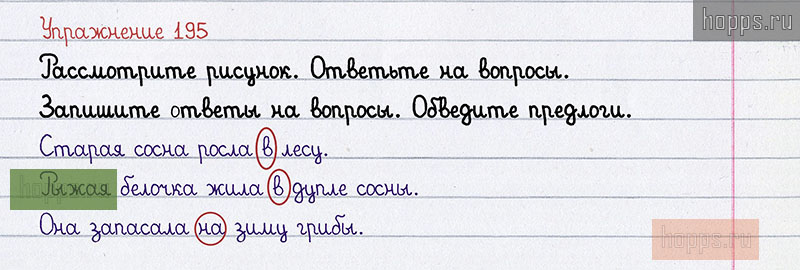 hopps.ru
Упражнение 195
Рассмотрите рисунок. Ответьте на вопросы.
Запишите ответы на вопросы. Обведите предлоги.
Старая сосна росла в лесу.
Рыжая белочка жила в дупле сосны.
Она запасала на зиму грибы.
hopps.ru